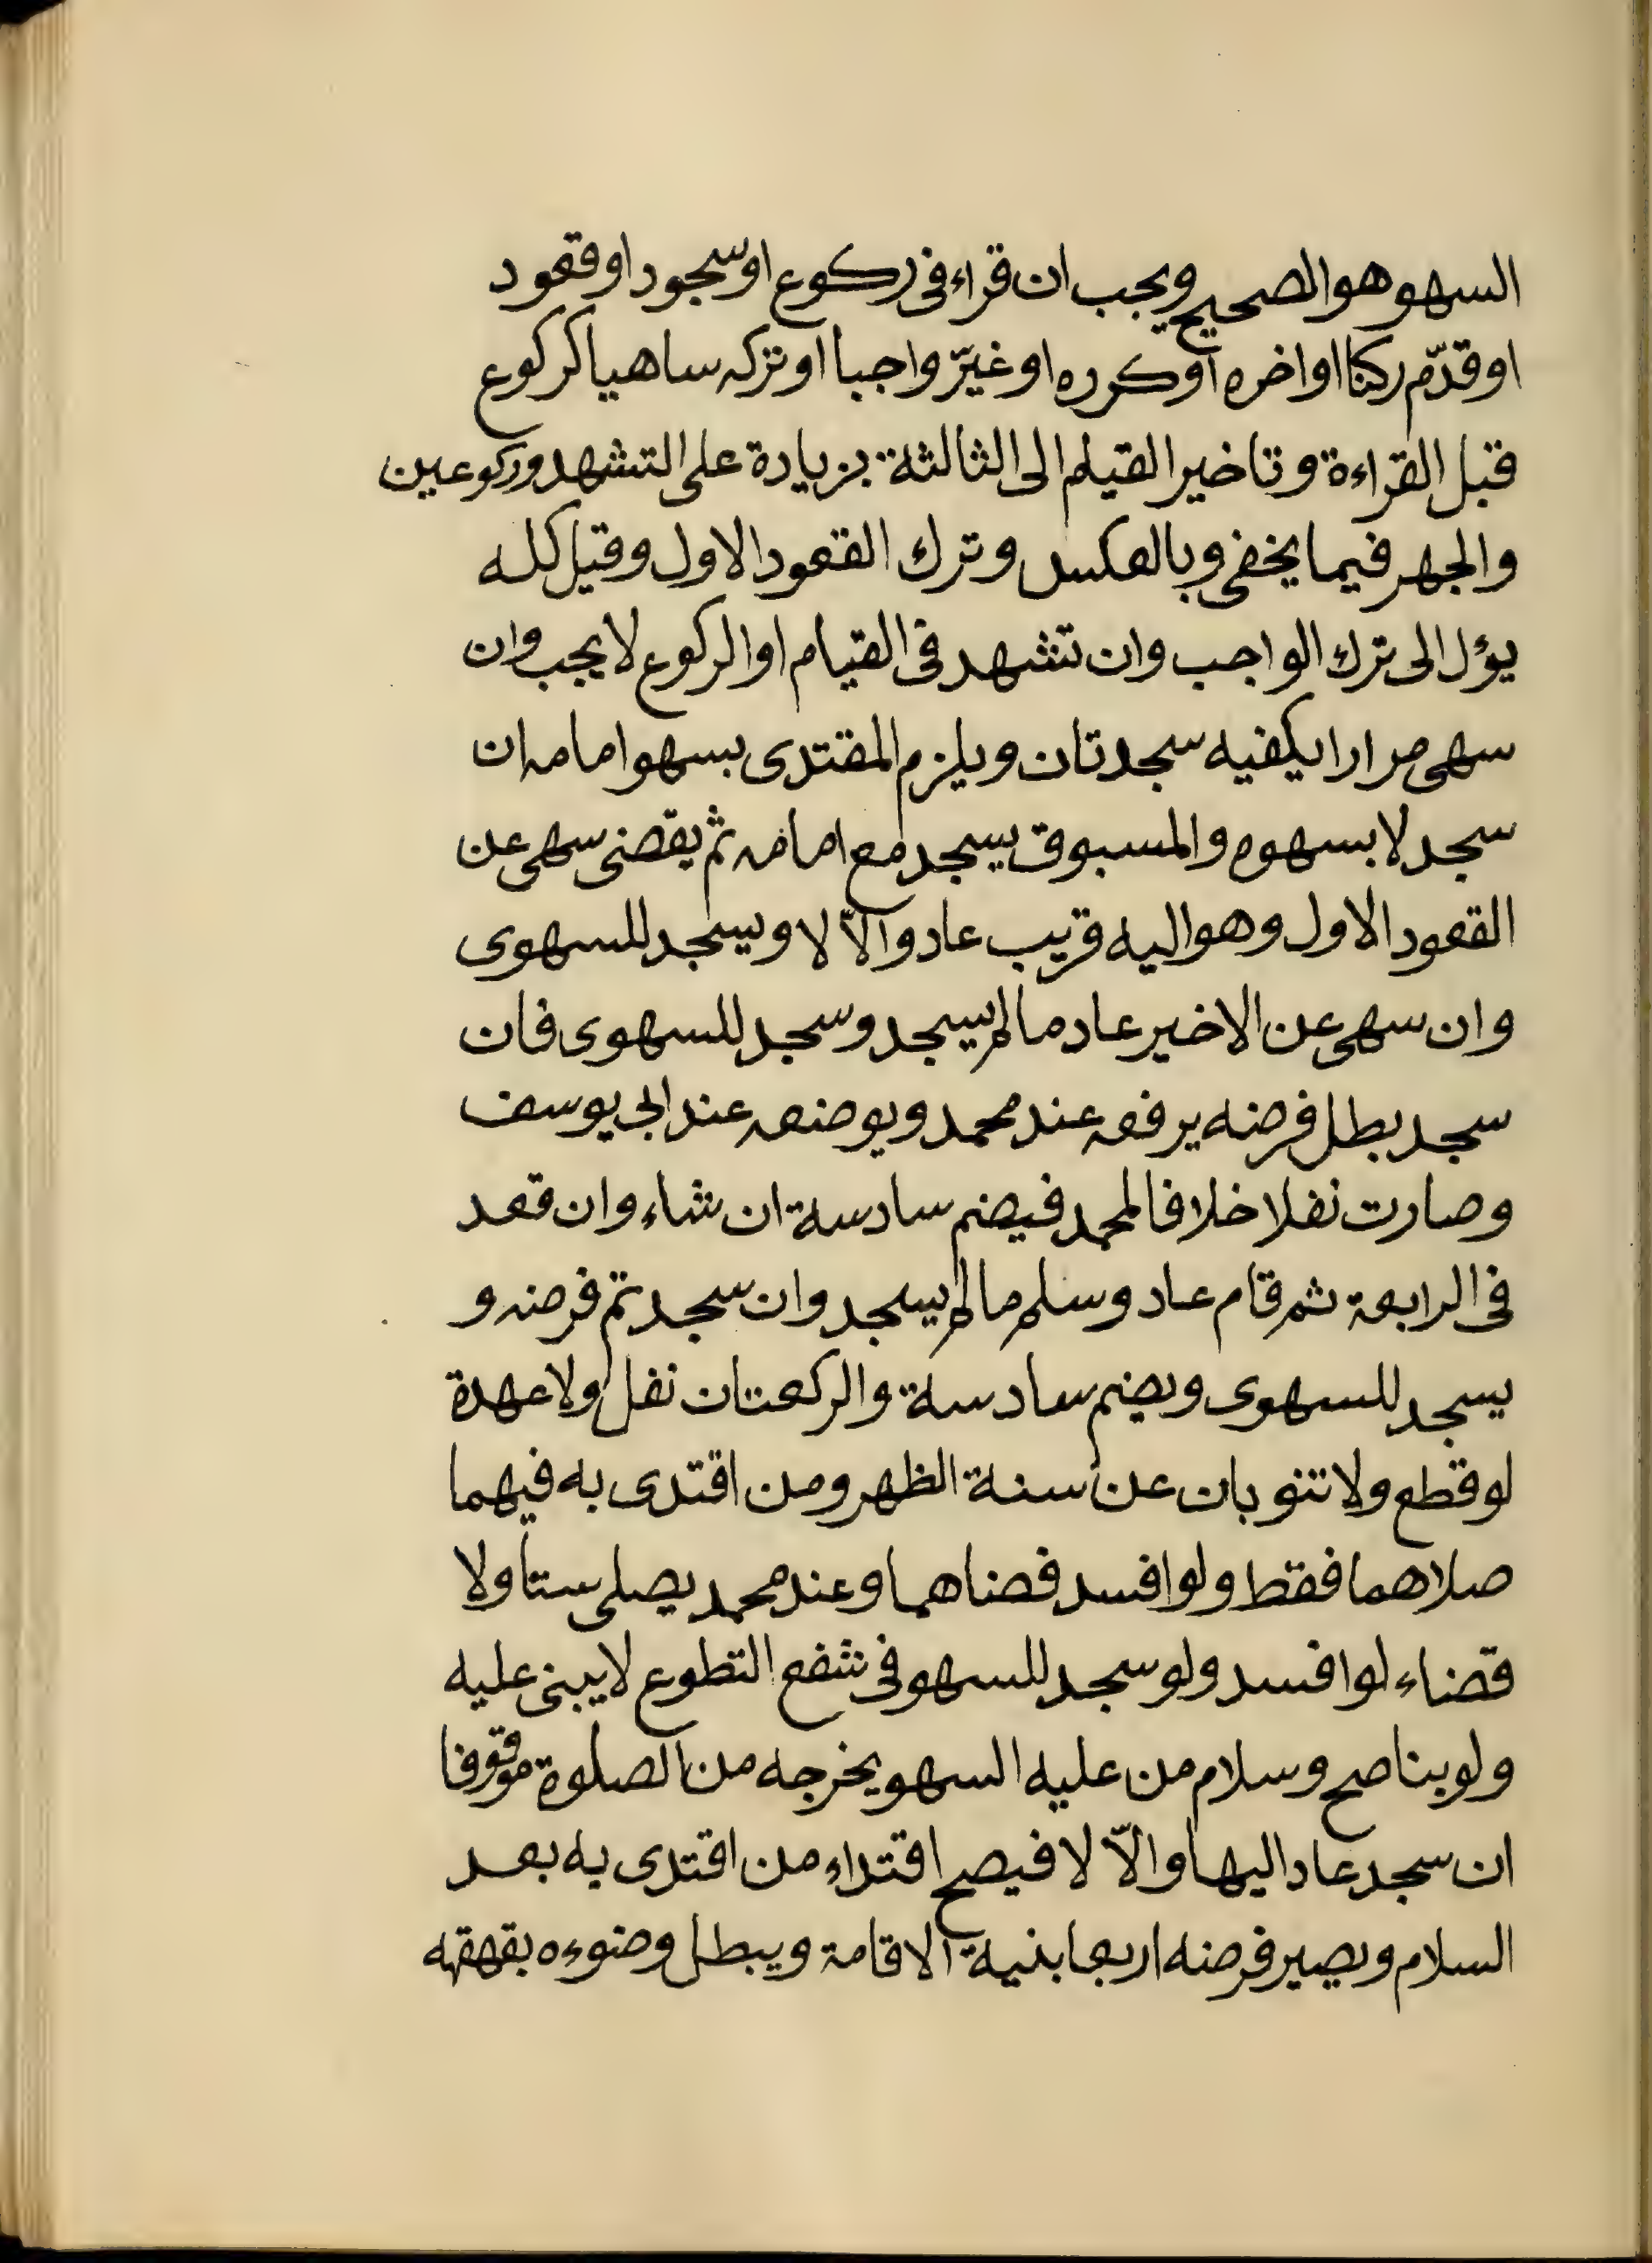 السهو هو الصحيح ويجب ان قراء في ركوع او سجود او قعود
او قدّم ركنا او اخره او كرره او غيّر واجبا او تركه ساهيا كركوع
قبل القراءة وتاخير القيام الى الثالثة بزيادة على التشهد وركوعين
والجهر فيما يخفى وبالعكس وترك القعود الاول وقيل كله
يؤل الى ترك الواجب وان تشهد في القيام او الركوع لا يجب وان
سهى مرارا يكفيه سجدتان ويلزم المقتدى بسهو امامه ان
سجد لا بسهوه والمسبوق يسجد مع امامه ثم يقضى سهى عن
القعود الاول وهو اليه قريب عاد والاّ لا ويسجد للسهوى
وان سهى عن الاخير عاد ما لم يسجد وسجد للسهوى فان
سجد بطل فرضه برفعه عند محمد وبوضعه عند ابى يوسف
وصارت نفلا خلافا لمحمد فيضم سادسة ان شاء وان قعد
فى الرابعة ثم قام عاد وسلم ما لم يسجد وان سجد تم فرضه و
يسجد للسهوى ويضم سادسة والركعتان نفل ولا عهدة
لو قطع ولا تنوبان عن سنة الظهر ومن اقتدى به فيهما
صلاهما فقط ولو افسد قضاهما وعند محمد يصلى ستا ولا
قضاء لو افسد ولو سجد للسهو فى شفع التطوع لا يبنى عليه
ولو بنا صح وسلام من عليه السهو يخرجه من الصلوة موقوفا
ان سجد عاد اليها والاّ لا فيصح اقتداء من اقتدى به بعد
السلام ويصير فرضه اربعا بنية الاقامة ويبطل وضوءه بقهقهه